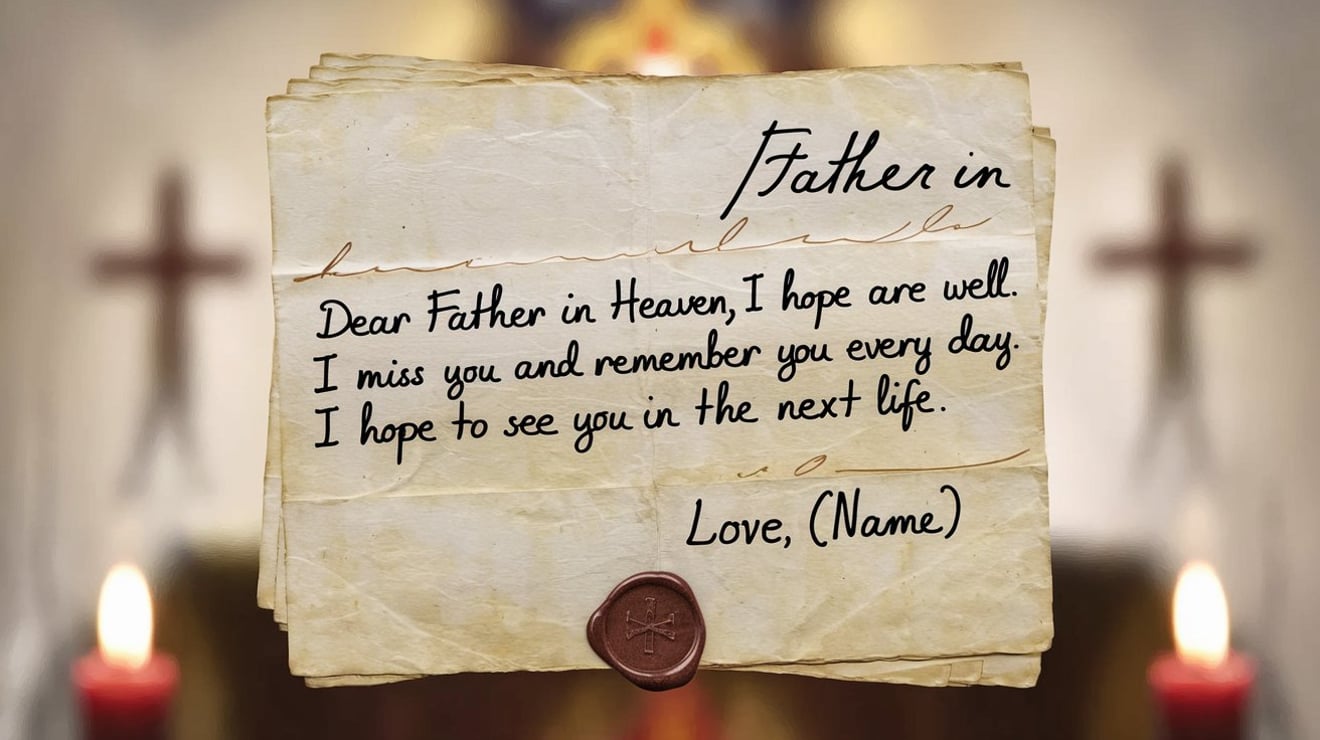 Father in
Dear Father in Heaven, I hope are well.
I miss you and remember you every day.
I hope to see you in the next life.
Love, (Name)